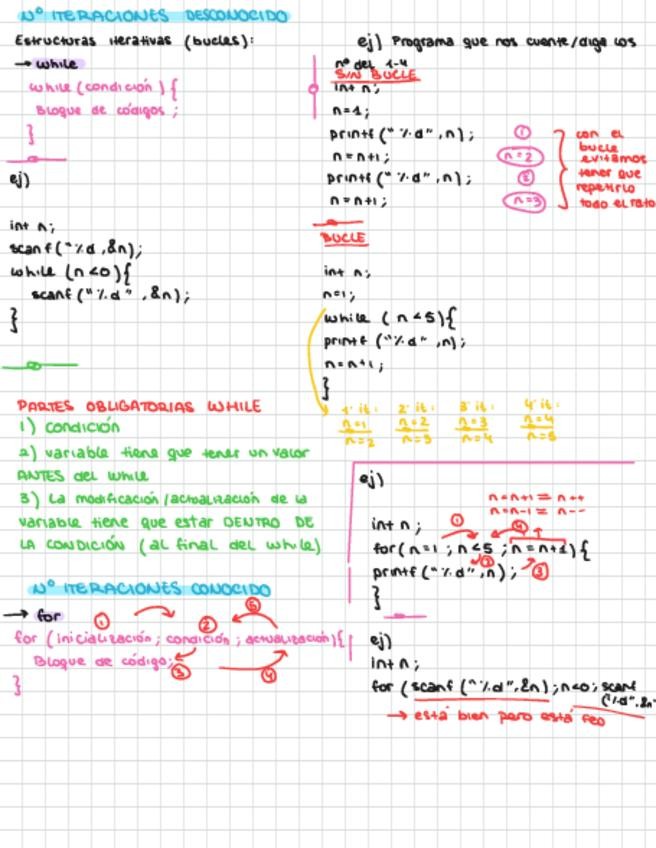 Nº ITERACIONES DESCONOCIDO
Estructuras iterativas (bucles):
→ while
while (condición) {
Bloque de códigos ;
}
ej)
int n;
scanf("%d ,&n);
while (n<0){
scanf("%d" ,&n);
}
PARTES OBLIGATORIAS WHILE
1) condición
2) variable tiene que tener un valor
ANTES del while
3) La modificación/actualización de la
variable tiene que estar DENTRO DE
LA CONDICIÓN (al final del while)
Nº ITERACIONES CONOCIDO
→ for
① ② ⑤
for (inicialización; condición; actualización){
Bloque de código;
③ ④
}
ej) Programa que nos cuente/diga los
nº del 1-4
SIN BUCLE
int n;
n=1;
printf("%d",n); ①
n=n+1; n=2
printf("%d",n); ②
n=n+1; n=3
con el
bucle
evitamos
tener que
repetirlo
todo el rato
BUCLE
int n;
n=1;
while (n<5){
printf ("%d" ,n);
n=n+1;
}
1ª it: 2ª it: 3ª it: 4ª it:
n=1 n=2 n=3 n=4
n=2 n=3 n=4 n=5
ej)
n=n+1 = n++
n=n-1 = n--
int n; ① ④
for(n=1 ; n<5 ; n=n+1){
②
printf("%d",n); ③
}
ej)
int n;
for (scanf ("%d",&n);n<0; scanf
("%d",&n
→ está bien pero está feo